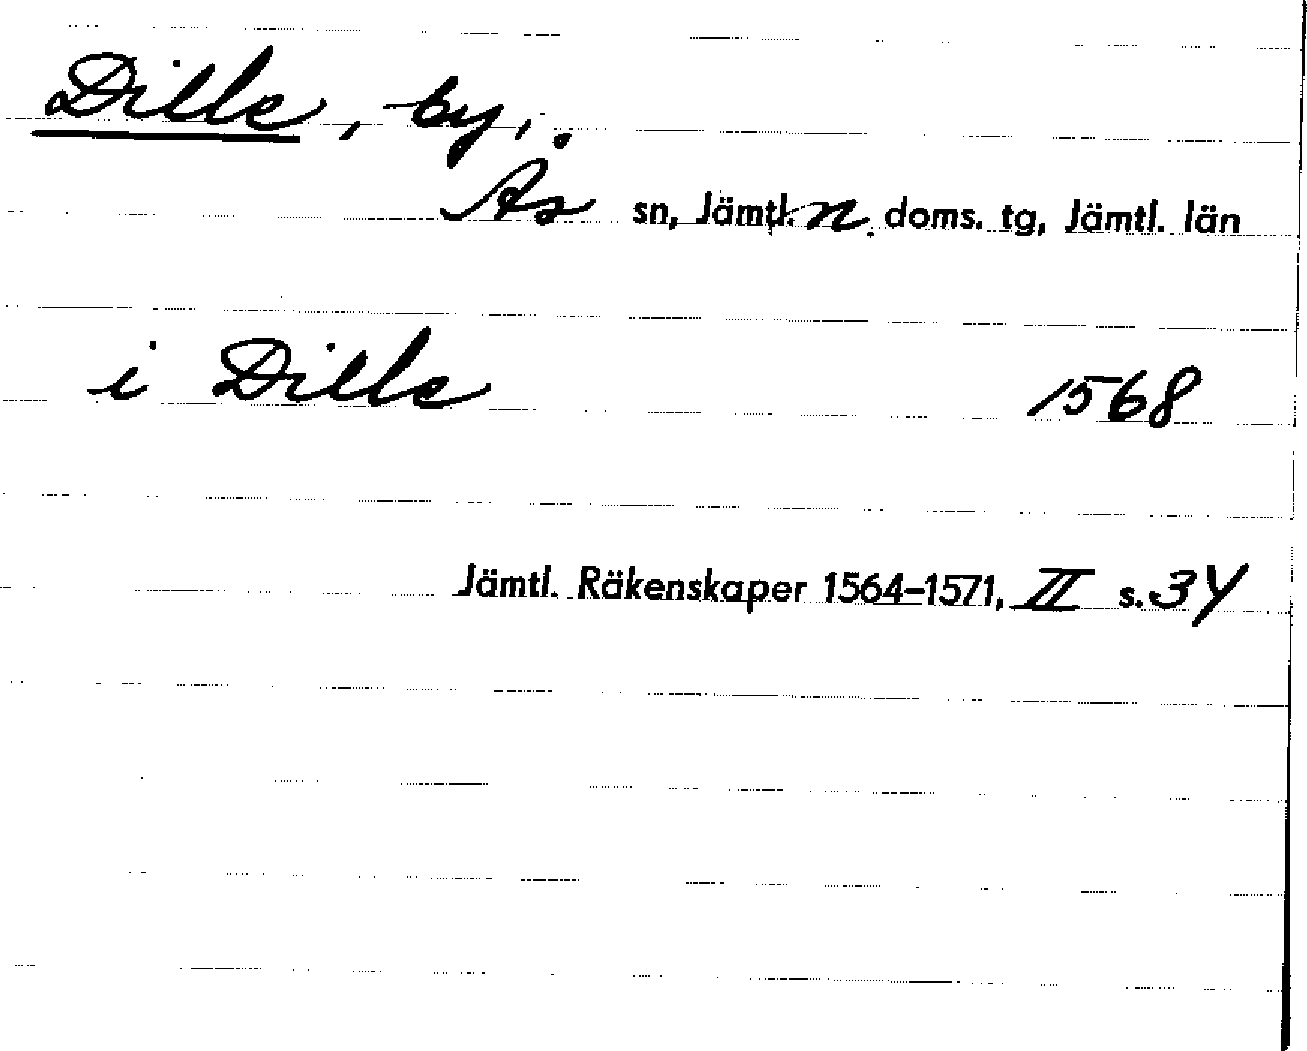 Dille, by,.
Ås sn, Jämtl. n. doms. tg, Jämtl. län
i Dille 1568
Jämtl. Räkenskaper 1564-1571, II s. 34